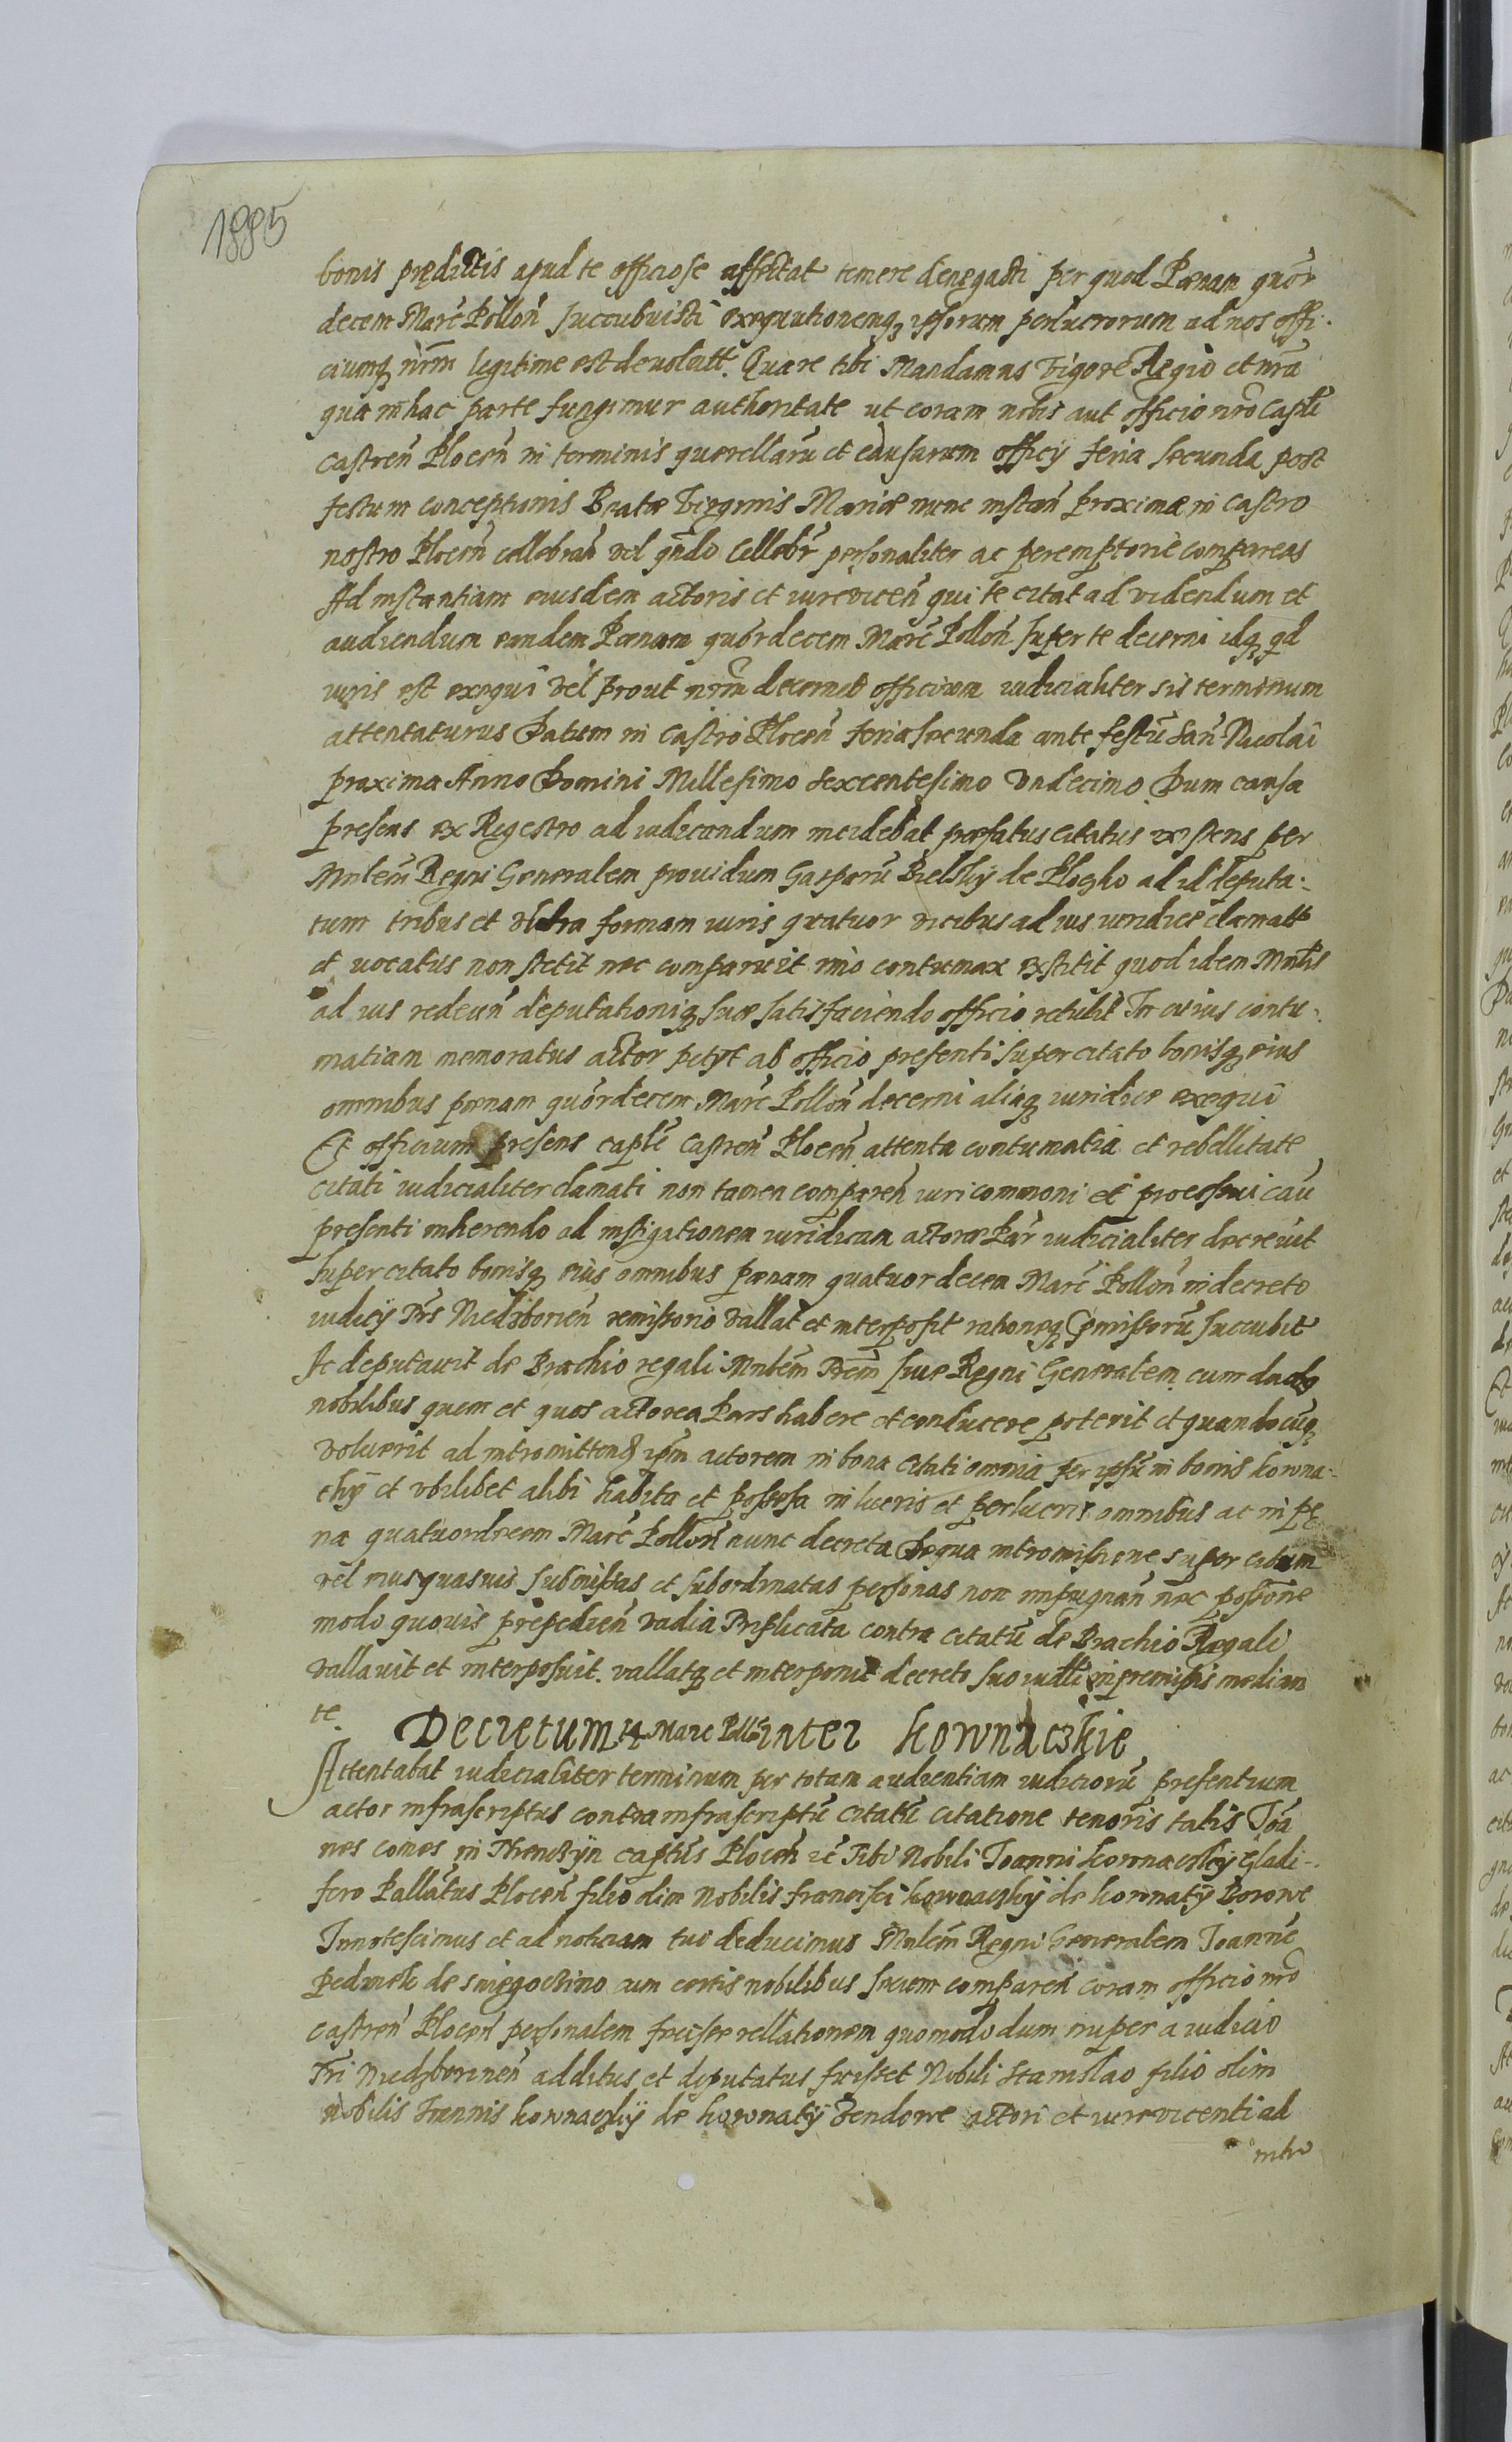 1885
bonis prędictis apud te officiose affectat temere denegasti per quod Pœnam quór
decem Marc̃ Pollon̄ succubuisti exequutionemq; ipsorum perlucrorum ad nos offi.
ciumq; nr̃m legitime est deuolutt. Quare tibi Mandamus Vigore Regio et nr̃a
qua in hac parte fungimur authoritate ut coram nobis aut officio nr̃o Captli
castren̄ Plocen̄ in terminis querellarū et causarum officÿ feria secunda post
festum conceptionis Beatæ Virginis Mariæ nunc instan̄ proxima in castro
nostro Plocen̄ cellebran̄ vel qñdo cellebr̃ personaliter ac peremptoriè compareas
Ad instantiam eiusdem actoris et iurevicen̄ qui te citat ad videndum et
audiendum eandem Pœnam quórdecem Marc̃ Pollon̄ super te decerni idq; qd
iuris est exequi vel prout nr̃m decernet officium iudicialiter sis terminum
attentaturus Datum in Castro Plocen̄ feria secunda ante festū San̄ Nicolai
proxima Anno Domini Millesimo sexcentesimo Vndecimo. Dum causa
presens ex Regestro ad iudicandum incidebat præfatus citatus existens per
Mnlem̄ Regni Generalem prouidum Gasparū Bielskÿ de Plogko ad id deputa:
tum tribus et vltra formam iuris quatuor vicibus ad ius iuridice clamatt
et uocatus non stetit nec comparuit imò contumax exstitit quod idem Mnlis
ad ius redeun̄ deputationiq; suæ satisfaciendo officio retulit In cuius contu.
matiam memoratus actor petÿt ab officio presenti super citato bonisq; eius
omnibus pœnam quórdecem Marc̃ Pollon̄ decerni aliaq; iuridice exequi
Et officium presens captle castren̄ Plocen̄ attenta contumatia et rebellitate
citati iudicialiter clamati non tamen comparen̄ iuri commoni et processui cau
presenti inherendo ad instigationem iuridicam actoreæ Par̃ iudicialiter decreuit
super citato bonisq; eius omnibus pœnam quatuordecem Marc̃ Pollon̄ in decreto
iudicÿ Tr̃s Niedzborien̄ remissorio vallat et interposit rationeq; premissorū succubit
Ac deputauit de Brachio regali Mnlem̄ Trem̄ siue Regni Generalem cum duobq
nobilibus quem et quos actorea Pars habere et conducere poterit et quandocūq;
voluerit ad intromittend ipm̄ actorem in bona citati omnia per ipsū in bonis kowna:
chÿ et vbilibet alibi habita et possessa in lucris et perlucris omnibus ac in pę
na quatuordecem Marc̃ Pollon̄ nunc decreta De qua intromissione super citatum
vel eius quasuis submissas et subordinatas personas non impugnan̄ nec possõne
modo quouis prepedien̄ vadia Triplicata contra citatū de Brachio Regali
vallauit et interposuit. vallatq; et interponit decreto suo iudtli in premissis median
te.
Decretum 14 Marc Poll inter kownaczkie
Attentabat iudicialiter terminum per totam audientiam iudiciorū presentium
actor infrascriptus contra infrascriptū citatū citatione tenoris talis Joā
nes comes in Thenczÿn captūs Plocen̄ ec̃ Tibi Nobili Joanni kownaczkÿ Gladi-.
fero Pallatus Plocen̄ filio olim Nobilis Francisci kownaczkÿ de kownatÿ Borowe
Innotescimus et ad noticiam tui deducimus Mnlem̄ Regni Generalem Joannē
Pedmek de Sniegoczino cum certis nobilibus secum comparen̄ coram officio nr̃o
castren̄ Plocen̄ personalem fecisse rellationem quomodo dum nuper a iudicio
Tri Niedzborinen̄ additus et deputatus fuisset Nobili Stanislao filio olim
nobilis Joannis kownaczkÿ de kownatÿ Zendowe actori et iurevicenti ad
intro